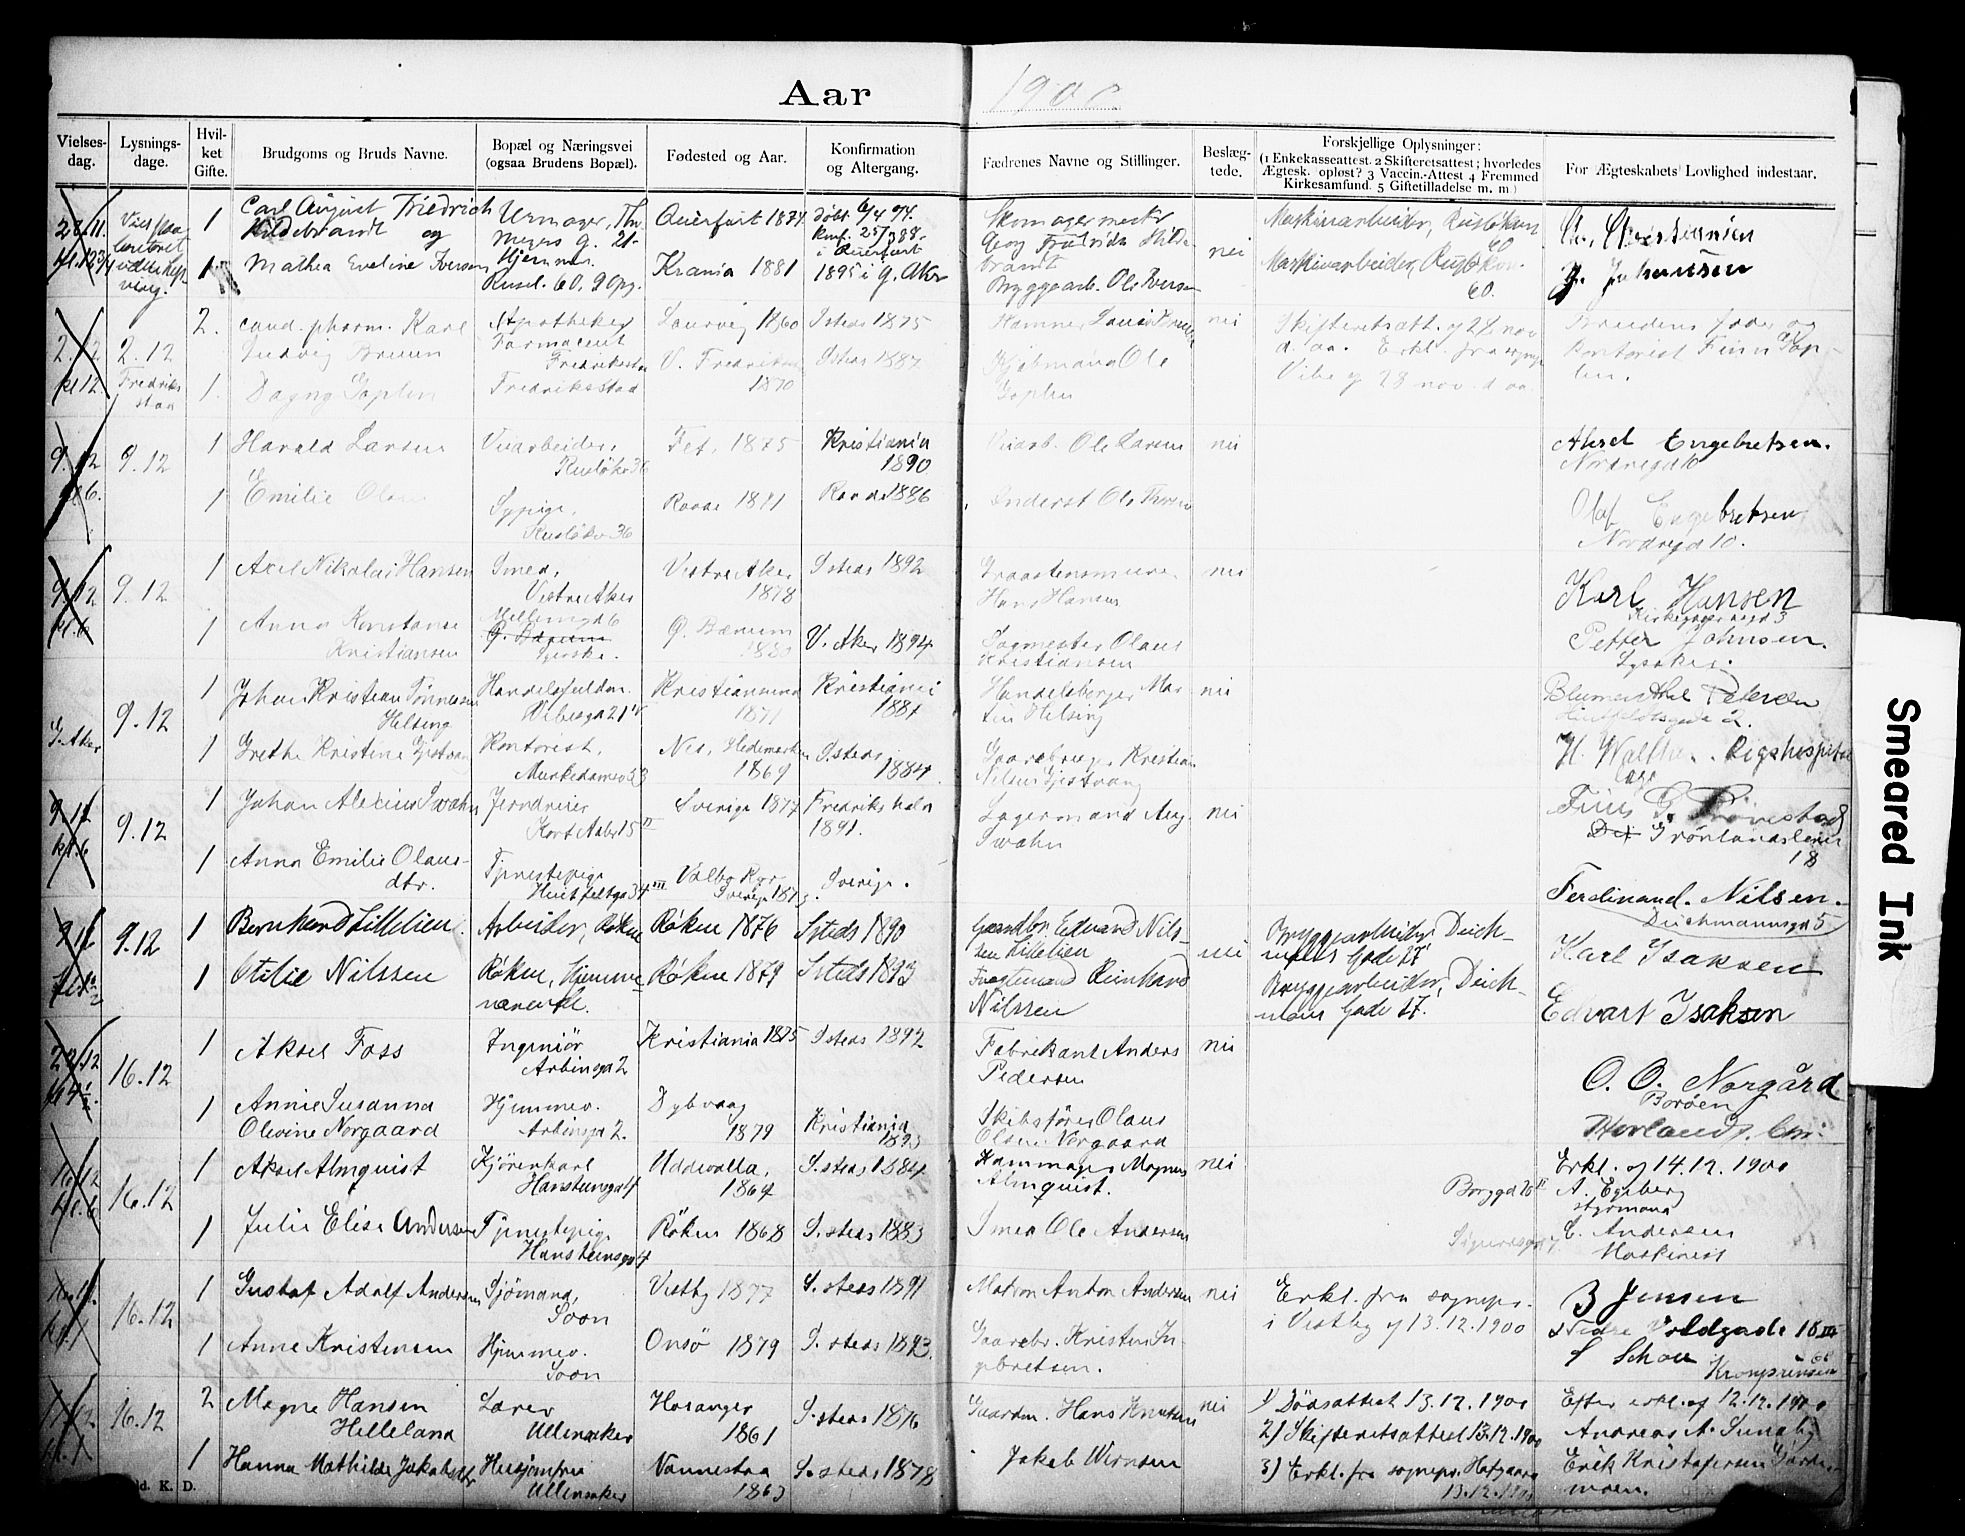 Aar 1900
Vielses-
dag.
Lysnings-
dage.
Hvil-
ket
Gifte.
Brudgoms og Bruds Navne.
Bopæl og Næringsvei
(ogsaa Brudens Bopæl).
Fødested og Aar.
Konfirmation
og Altergang.
Fædrenes Navne og Stillinger.
Beslæg-
tede.
Forskjellige Oplysninger:
(1 Enkekasseattest. 2 Skifteretsattest; hvorledes
Ægtesk. opløst? 3 Vaccin.-Attest 4 Fremmed
Kirkesamfund. 5 Giftetilladelse m. m.)
For Ægteskabets Lovlighed indestaar.
1
Carl August Friedrich
Hildebrandt og
Urmager, Th.
Meyers g. 21
Querfurt 1874
døbt 6/4 74.
konf. 25/3 88
i Querfurt
Skomagermester
Georg Friedrich Hilde-
brandt
nei
Maskinarbeider, Rusløkv.
60
Chr. Christiansen
1
Mathea Eveline Iversen
Hjemme
Rusel. 60, 9 opg.
Krania 1881
1895 i G. Aker
Byggearb. Ole Iversen
Maskinarbeider, Rusløkv.
60.
J. Johansen
2.12
kl 12.
2.12
Fredriks
stad
2.
cand. pharm. Karl
Ludvig Bruun
Apotheker
Farmaceut
Fredriksstad
Laurvig 1860
Isteds 1875
nei
Skifteretsatt. af 28. nov
d. aa. Erkl. fra sognepr
Vibe af 28 nov. d. aa.
Brudens fader og
kontorist Finn Gop-
len.
1.
Dagny Goplen
Fredriksstad
V. Fredrikstad
1870
Isteds 1887
Kjøbmand Ole
Goplen
9.12
kl 6.
9.12
1
Harald Larsen
Veiarbeider,
Rusløkv 36
Fet, 1875
Kristiania
1890
Veiarb. Ole Larsen
nei
Aksel Engebretsen.
Nordregd 10
1
Emilie Olsen
Sypige,
Rusløkv 36
Raade 1871
Raade 1886
Inderst Ole Thoresen
Olaf Engebretsen
Nordregd 10.
9.12
kl. 6
9.12
1
Axel Nikolai Hansen
Smed,
Vestre Aker
Vestre Aker
1878
Isteds 1892
Graastensmurer
Hans Hansen
nei
Karl Hansen
Kirkegaardsgd 3
1
Anna Konstanse
Kristiansen
Mellemgd 6
G. Bærum
Syerske.
G. Bærum
1880
V. Aker 1894
Sagmester Olaus
Kristiansen
Petter Johnsen.
Lysaker.
G. Aker
9.12
1
Johan Kristian Tønnesen
Helsing
Handelsfuldm.
Vibesgd 21 IV
Kristianssund
1871
Kristiania
1887
Handelsborger Mar-
tin Helsing
nei
Blumenthal Petersen
1
Grethe Kristine Gjestvang
Kontorist,
Munkedamsv 53
Nes, Hedemarken
1869
Isteds
1884.
Gaardbruger Kristian
Nilsen Gjestvang
H. Walther. Rigshospitalet
9.12
kl. 6
9.12
1
Johan Alexius Swahn
Jerndreier
Kort Adlers 15 II
Sverige 1877
Fredrikshaln
1891.
Lagermand Aug.
Swahn
nei
Finn G. Grönestad
Grönlandsleiret
18
1
Anna Emilie Olaus-
dtr.
Tjenestepige
Huitfeltsgd 34 III
Valbo Ryr
Sverige 1873
Sverige.
Ferdinand Nilsen.
Deichmannsgd 5
9.12
9.12
1
Bernhard Lillelien.
Arbeider, Røken
Røken 1876
Isteds 1890
Gaardbr. Edvard Nils-
sen Lillelien
nei
Bryggearbeider, Deich-
mans Gade 27
Karl Isaksen
1
Otilie Nilssen
Røken, hjemme-
værende.
Røken 1879
Isteds 1893
Fragtemand Reinhard
Nilssen
Bryggearbeider, Deich-
mans Gade 27.
Edvart Isaksen
16.12
1
Aksel Foss
Ingeniør
Arbinsgd 2
Kristiania 1875
Isteds 1892
Fabrikant Anders
Pedersen
nei
O. O. Norgård
Borøen
1
Annie Susanna
Olevine Norgaard
Hjemmev.
Arbinsgd 2.
Dybvaag
1879
Kristiania
1893
Skibsfører Olaus
Olsen Norgaard
16.12
kl. 6
16.12
1
Aksel Almquist
Kjørekarl
Hansteensgd 4
Uddevalla,
1864
I. steds 1884
Hammags Magnus
Almquist.
nei
Borggd 20 II
Erkl. af 14.12.1900
A. Egeberg
styrmand
1
Julie Elise Andersen
Tjenestepige
Hansteensgd 4
Røken 1868
I. steds 1883
Smed Ole Andersen
E. Andersen
Maskinist
16.12
1
Gustaf Adolf Andersen
Sjømand,
Soon
Vestby 1877
I. steds 1891
Matros Anton Andersen
nei
Erkl. fra sognepr.
i Vestby af 13.12.1900
B Jensen
Nedre Voldgade 18 III
1
Anne Kristensen
Hjemmev.
Soon
Onsö 1879
I. steds 1893.
Gaardbr. Kristen In-
gebretsen.
S Schou
Kronprinsens
17.12
kl. 1
16.12
2
Magne Hansen
Helleland
Lærer
Ullensaker
Haranger
1861
I. steds 1876
Gaardm. Hans Knutsen
nei
1) Dødsattest 13.12.1900
2) Skifteretsattest 13.12.1900
3) Erkl. fra sognepr. Hofgaard
13.12.1900
Efter erkl. af 12.12.1900
Andreas A. Sundby
1
Hanna Mathilde Jakobsdtr
Husjomfru
Ullensaker
Vannestad
1863
I. steds 1878
Jakob Wernsen
Erik Kristofersen Garder-
moen.
K. D.
Smeared Ink